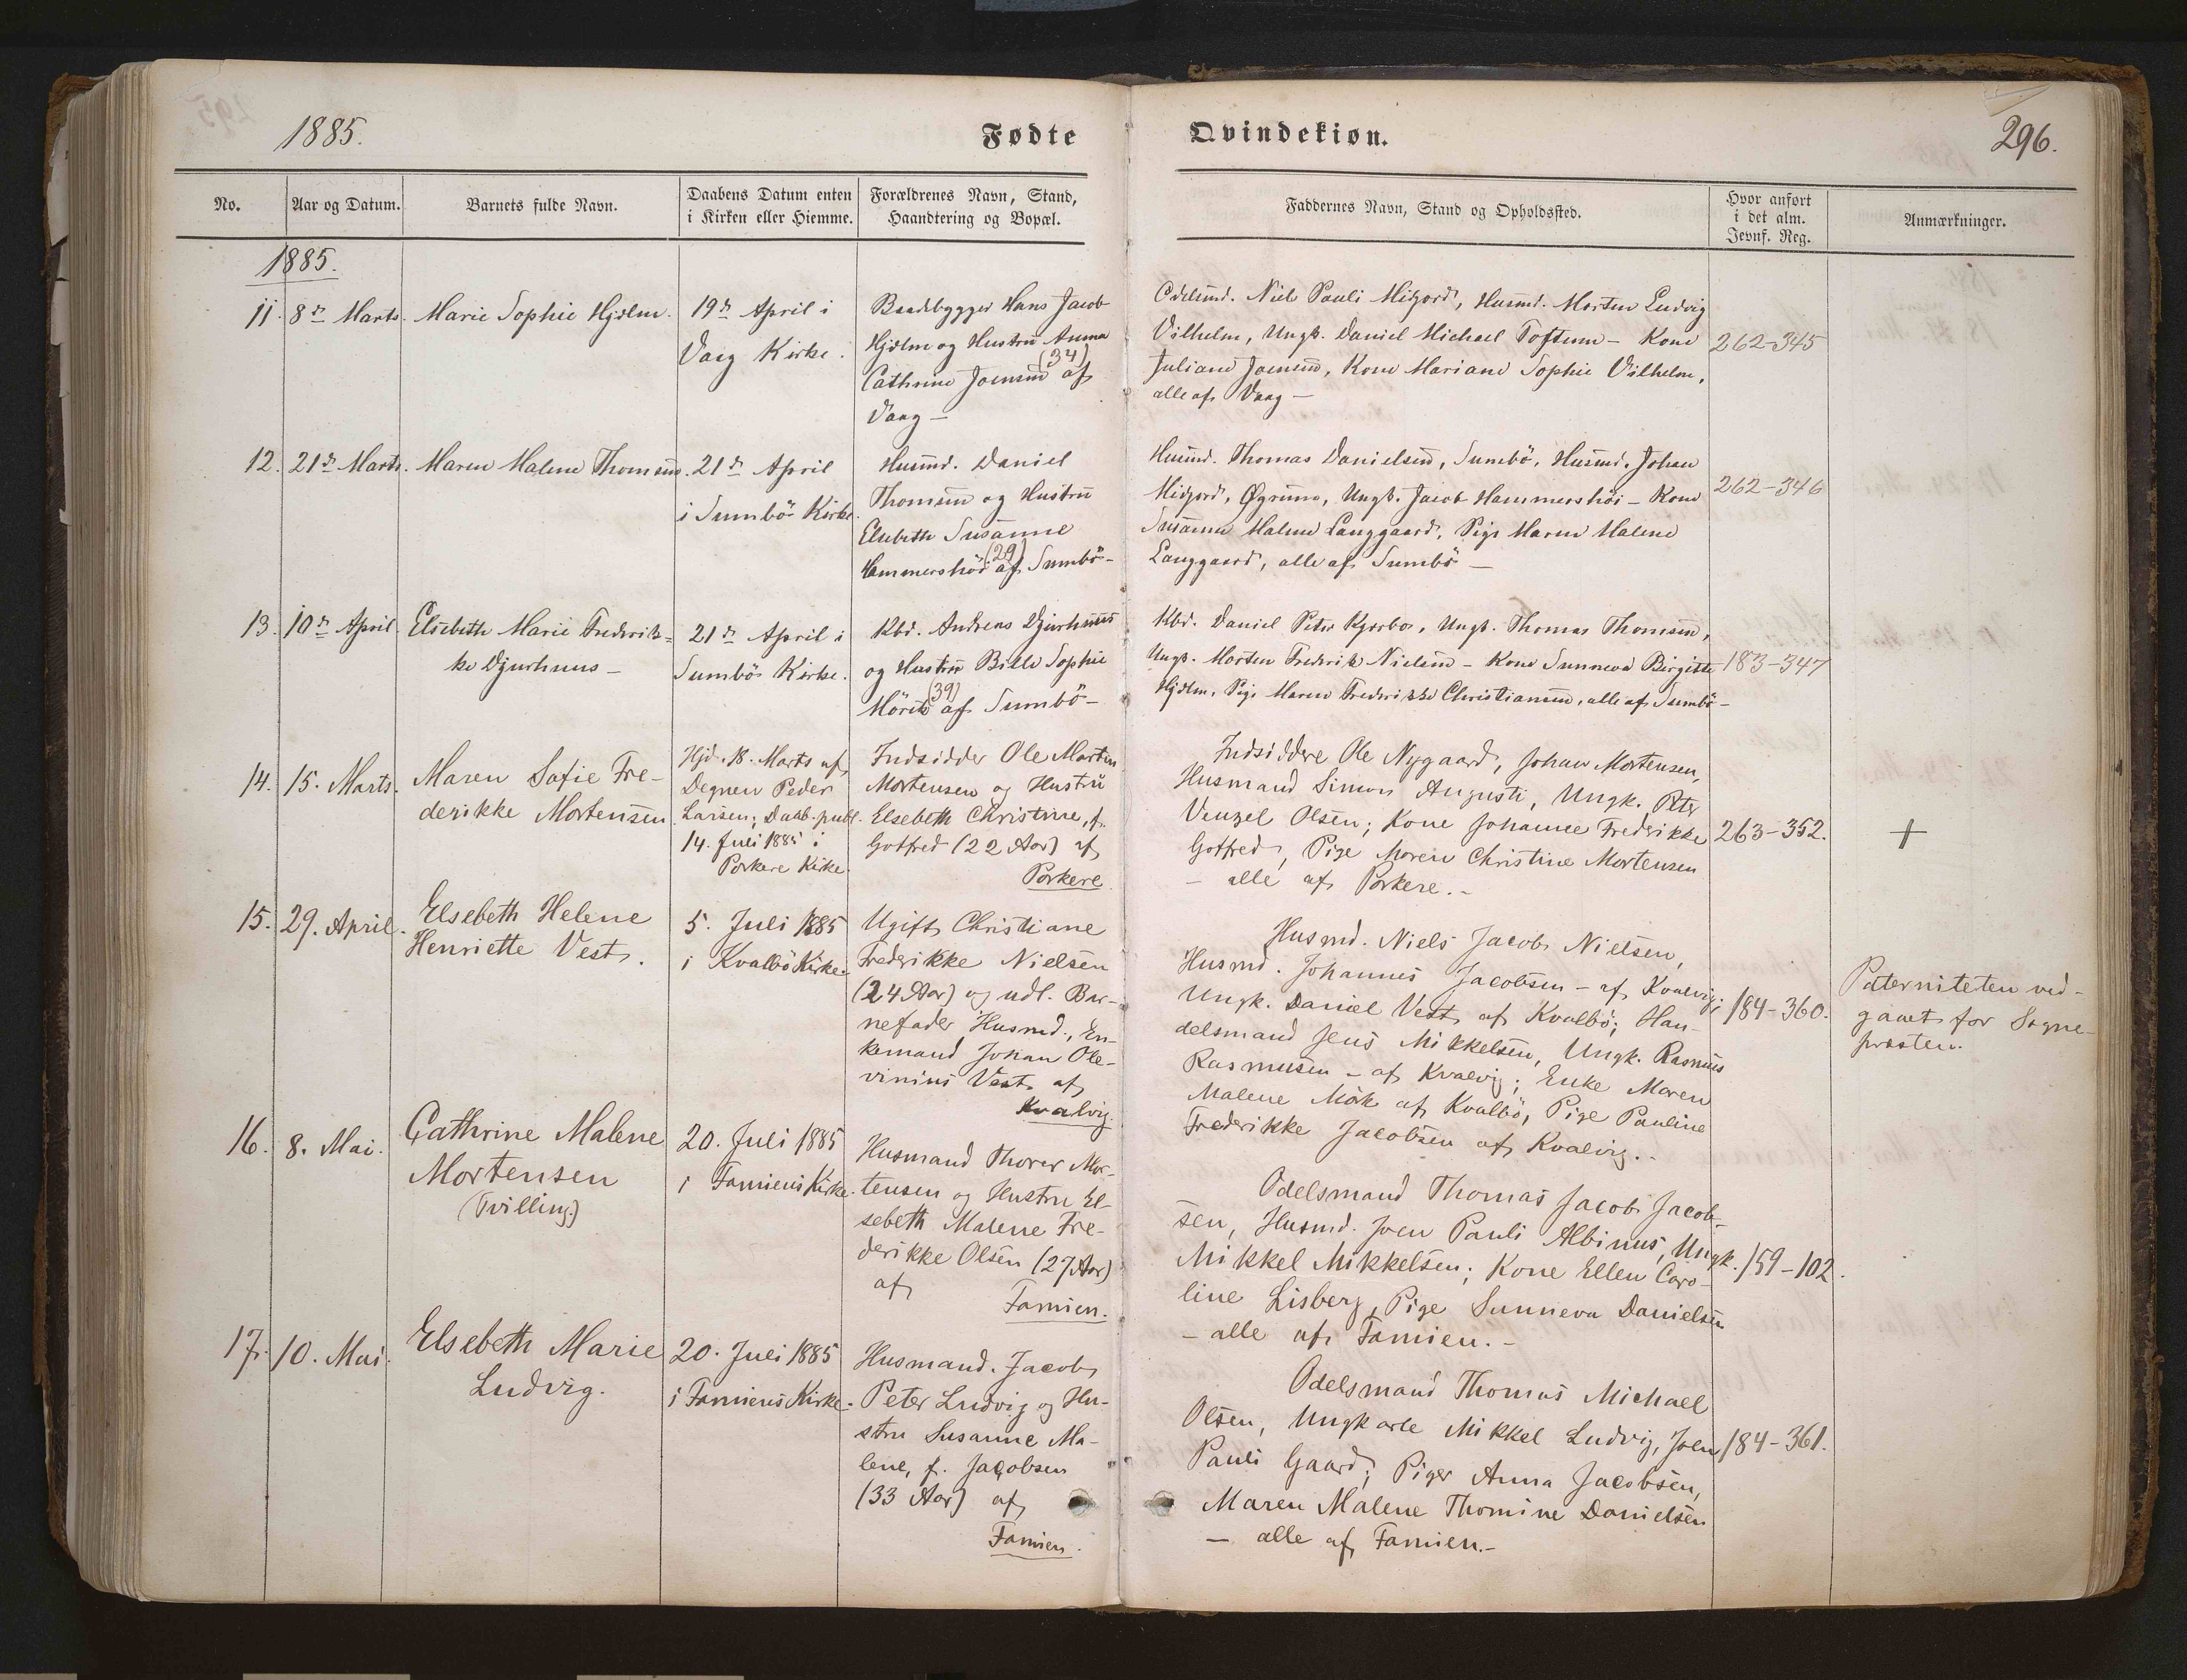 1885.
Fødte
Qvindekiøn.
296.
No.
Aar og Datum.
Barnets fulde Navn.
Daabens Datum enten
i Kirken eller Hiemme.
Forældrenes Navn, Stand,
Haandtering og Bopæl.
Faddernes Navn, Stand og Opholdssted.
Hvor anført
i det alm.
Jevnf. Reg.
Anmærkninger.
1885.
11. 8de Marts. Marie Sophie Hjølm.
19de April i
Vaag Kirke.
Baadbygger Hans Jacob
Hjølm og Hustru Anna
(34)
Cathrine Joensen af
Vaag —
Odelsmd. Niels Pauli Midjord, Husmd. Morten Ludvig
Vilhelm, Ungk. Daniel Michael Toftum - Kone
Juliane Joensen, Kone Mariane Sophie Vilhelm,
alle af Vaag —
262-345
12. 21de Marts. Maren Malene Thomsen.
21de April
i Sumbö Kirke.
Husmd. Daniel
Thomsen og Hustru
Elsebeth Susanne
(29)
Hammershöi af Sumbö -
Husmd. Thomas Danielsen, Sumbö, Husmd. Johan
Midjord, Øgrum, Ungk. Jacob Hammershöi - Kone
Susanne Malene Langgaard, Pige Maren Malene
Langgaard, alle af Sumbö —
262-346
13. 10de April. Elsebeth Marie Frederik=
ke Djurhuus —
21de April i
Sumbö Kirke.
Kbd. Andreas Djurhuus
og Hustru Bille Sophie
(39)
Mörits af Sumbö -
Kbd. Daniel Peter Kjærbo, Ungk. Thomas Thomsen,
Ungk. Morten Frederik Nielsen - Kone Sunneva Birgitte
Hjølm, Pige Maren Frederikke Christiansen, alle af Sumbö -
183-347
14. 15. Marts.
Maren Sofie Fre-
derikke Mortensen
Hjd. 18. Marts af
Degnen Peder
Larsen; Daab. publ.
14. Juli 1885 i
Porkere Kirke.
Indsidder Ole Martin
Mortensen og Hustru
Elsebeth Christine, f.
Gotfred (22 Aar) af
Porkere.
Indsiddere Ole Nygaard, Johan Mortensen,
Husmand Simon Augusti, Ungk. Peter
Venzel Olsen; Kone Johanne Frederikke
Gotfred, Pige Maren Christine Mortensen
- alle af Porkere. -
263-352.
+
15. 29. April.
Elsebeth Helene
Henriette Vest.
5. Juli 1885
i Kvalbö Kirke.
Ugift Christiane
Frederikke Nielsen
(24 Aar) og udl. Bar-
nefader Husmd., En-
kemand Johan Ole-
vinius Vest af
Kvalvig
Husmd. Niels Jacob Nielsen,
Husmd. Johannes Jacobsen - af Kvalvig;
Ungk. Daniel Vest af Kvalbö; Han-
delsmand Jens Mikkelsen, Ungk. Rasmus
Rasmusen - af Kvalvig; Enke Maren
Malene Mörk af Kvalbö, Pige Pauline
Frederikke Jacobsen af Kvalvig. -
184-360.
Paterniteten ved-
gaaet for Sogne-
præsten.
16. 8. Mai.
Cathrine Malene
Mortensen
(Tvilling.)
20. Juli 1885
i Famiens Kirke.
Husmand Thorer Mor-
tensen og Hustru El-
sebeth Malene Fre-
derikke Olsen (27 Aar)
af
Famien.
Odelsmand Thomas Jacob Jacob-
sen, Husmd. Joen Pauli Albinus, Ungk.
Mikkel Mikkelsen; Kone Ellen Caro-
line Lisberg, Pige Sunneva Danielsen
- alle af Famien. -
159-102.
17. 10. Mai.
Elsebeth Marie
Ludvig.
20. Juli 1885
i Famiens Kirke.
Husmand. Jacob
Peter Ludvig og Hu-
stru Susanne Ma-
lene, f. Jacobsen
(33 Aar) af
Famien.
Odelsmand Thomas Michael
Olsen, Ungkarle Mikkel Ludvig, Joen
Pauli Gaard; Piger Anna Jacobsen,
Maren Malene Thomine Danielsen
— alle af Famien. -
184-361.